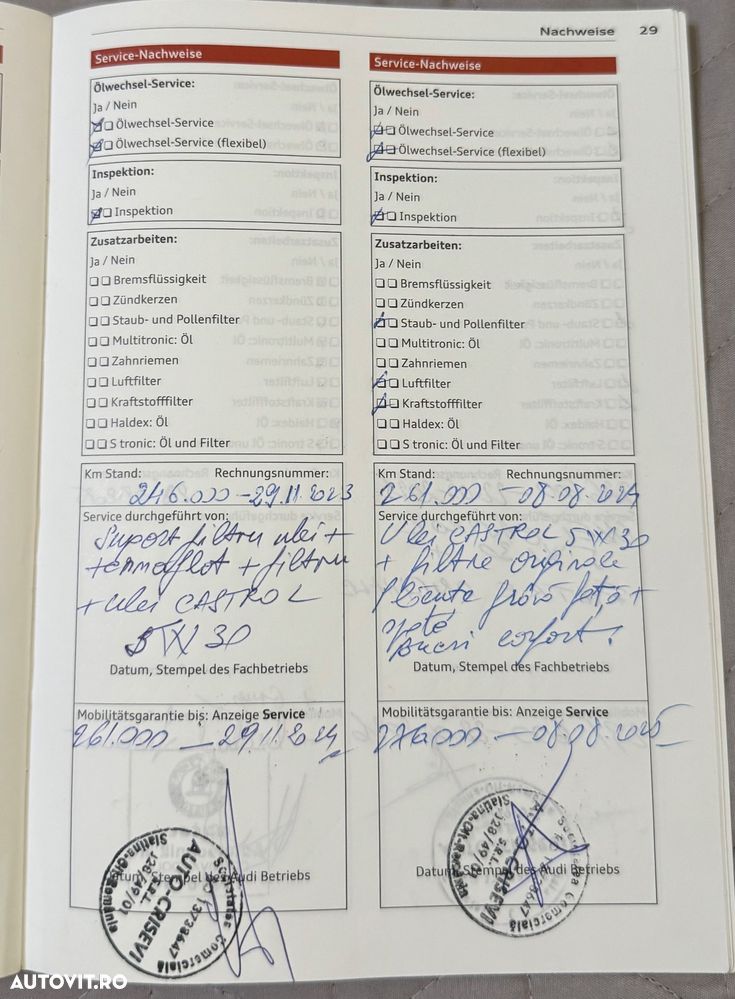 Nachweise 29
Service-Nachweise
Ölwechsel-Service:
Ja / Nein
Ölwechsel-Service
Ölwechsel-Service (flexibel)
Inspektion:
Ja / Nein
Inspektion
Zusatzarbeiten:
Ja / Nein
Bremsflüssigkeit
Zündkerzen
Staub- und Pollenfilter
Multitronic: Öl
Zahnriemen
Luftfilter
Kraftstofffilter
Haldex: Öl
S tronic: Öl und Filter
Km Stand: Rechnungsnummer:
246.000 - 29.11.2023
Service durchgeführt von:
Suport filtru ulei +
+ termoflot + filtru
+ ulei CASTROL
5W30
Datum, Stempel des Fachbetriebs
Mobilitätsgarantie bis: Anzeige Service
261.000 - 29.11.2024
Datum, Stempel des Audi Betriebs
Societatea Comercială
AUTO CRISEVI
S.R.L.
Slatina-Olt-România
Service-Nachweise
Ölwechsel-Service:
Ja / Nein
Ölwechsel-Service
Ölwechsel-Service (flexibel)
Inspektion:
Ja / Nein
Inspektion
Zusatzarbeiten:
Ja / Nein
Bremsflüssigkeit
Zündkerzen
Staub- und Pollenfilter
Multitronic: Öl
Zahnriemen
Luftfilter
Kraftstofffilter
Haldex: Öl
S tronic: Öl und Filter
Km Stand: Rechnungsnummer:
261.000 - 08.08.2024
Service durchgeführt von:
Ulei CASTROL 5W30
+ filtre originale
Plăcuțe frână față +
spate
Datum, Stempel des Fachbetriebs
Mobilitätsgarantie bis: Anzeige Service
276000 - 08.08.2025
Datum, Stempel des Audi Betriebs
AUTO CRISEVI
S.R.L.
AUTOVIT.RO